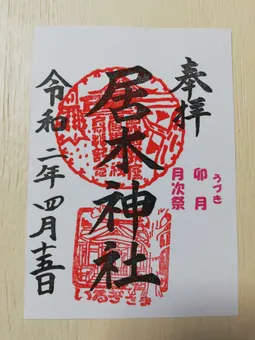 奉拝
卯月
うづき
月次祭
居木神社
いるぎさま
令和二年四月十五日